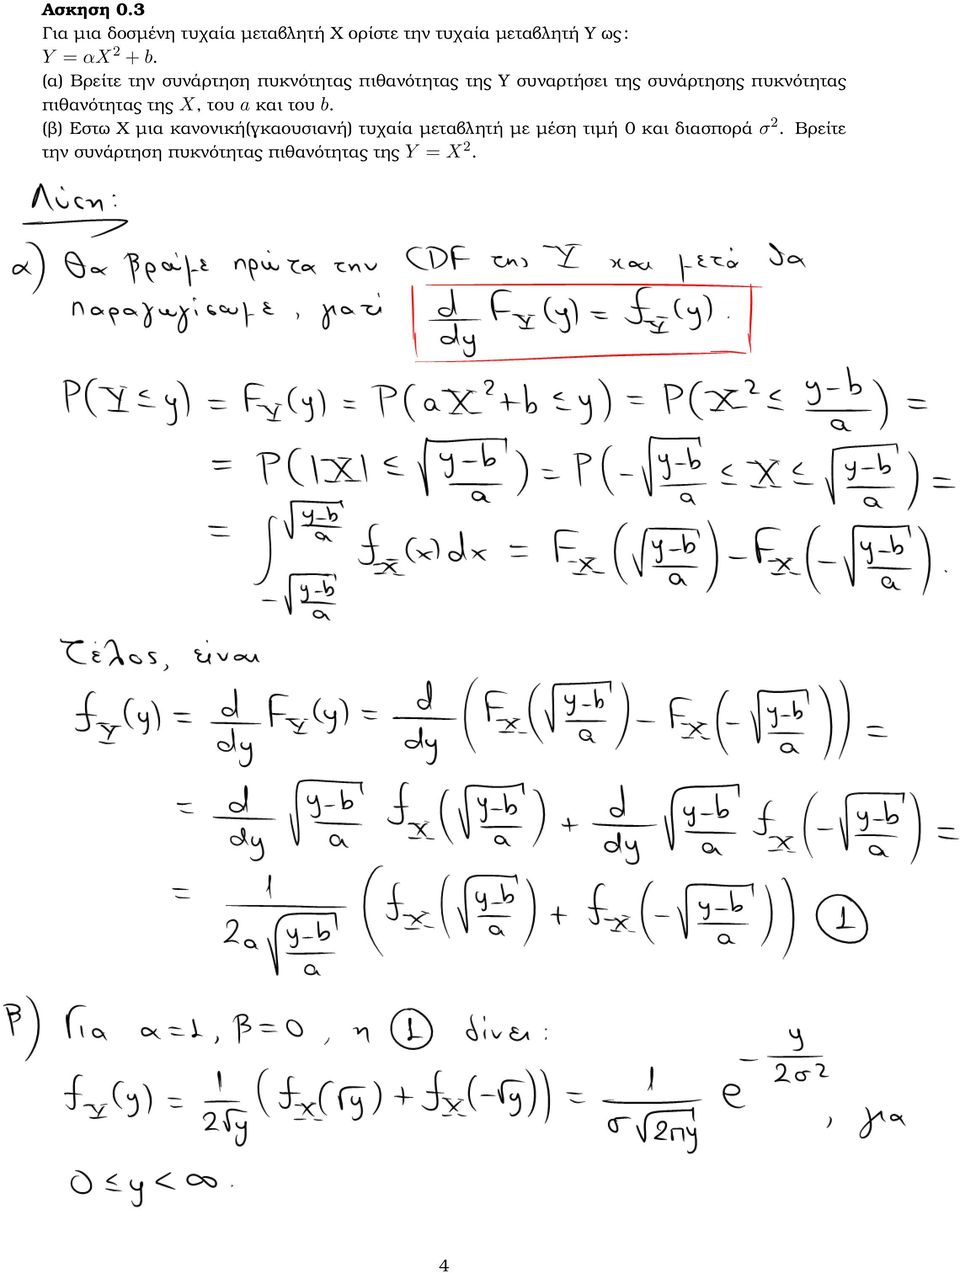 Ασκηση 0.3
Για μια δοσμένη τυχαία μεταβλητή Χ ορίστε την τυχαία μεταβλητή Υ ως:
Y = αX² + b.
(α) Βρείτε την συνάρτηση πυκνότητας πιθανότητας της Υ συναρτήσει της συνάρτησης πυκνότητας
πιθανότητας της X, του a και του b.
(β) Εστω Χ μια κανονική(γκαουσιανή) τυχαία μεταβλητή με μέση τιμή 0 και διασπορά σ². Βρείτε
την συνάρτηση πυκνότητας πιθανότητας της Y = X².
Λύση:
α) Θα βρούμε πρώτα την CDF της Y και μετά θα
παραγωγίσουμε, γιατί d/dy F_Y(y) = f_Y(y).
P(Y ≤ y) = F_Y(y) = P(aX² + b ≤ y) = P(X² ≤ (y-b)/a) =
= P(|X| ≤ √((y-b)/a)) = P(-√((y-b)/a) ≤ X ≤ √((y-b)/a)) =
= ∫_{-√((y-b)/a)}^{√((y-b)/a)} f_X(x)dx = F_X(√((y-b)/a)) - F_X(-√((y-b)/a)).
Τέλος, είναι
f_Y(y) = d/dy F_Y(y) = d/dy (F_X(√((y-b)/a)) - F_X(-√((y-b)/a))) =
= d/dy √((y-b)/a) f_X(√((y-b)/a)) + d/dy √((y-b)/a) f_X(-√((y-b)/a)) =
= 1/(2a√((y-b)/a)) (f_X(√((y-b)/a)) + f_X(-√((y-b)/a))) ①
β) Για α=1, β=0, η ① δίνει:
f_Y(y) = 1/(2√y) (f_X(√y) + f_X(-√y)) = 1/(σ√(2πy)) e^{-y/(2σ²)}, για
0 ≤ y < ∞.
4